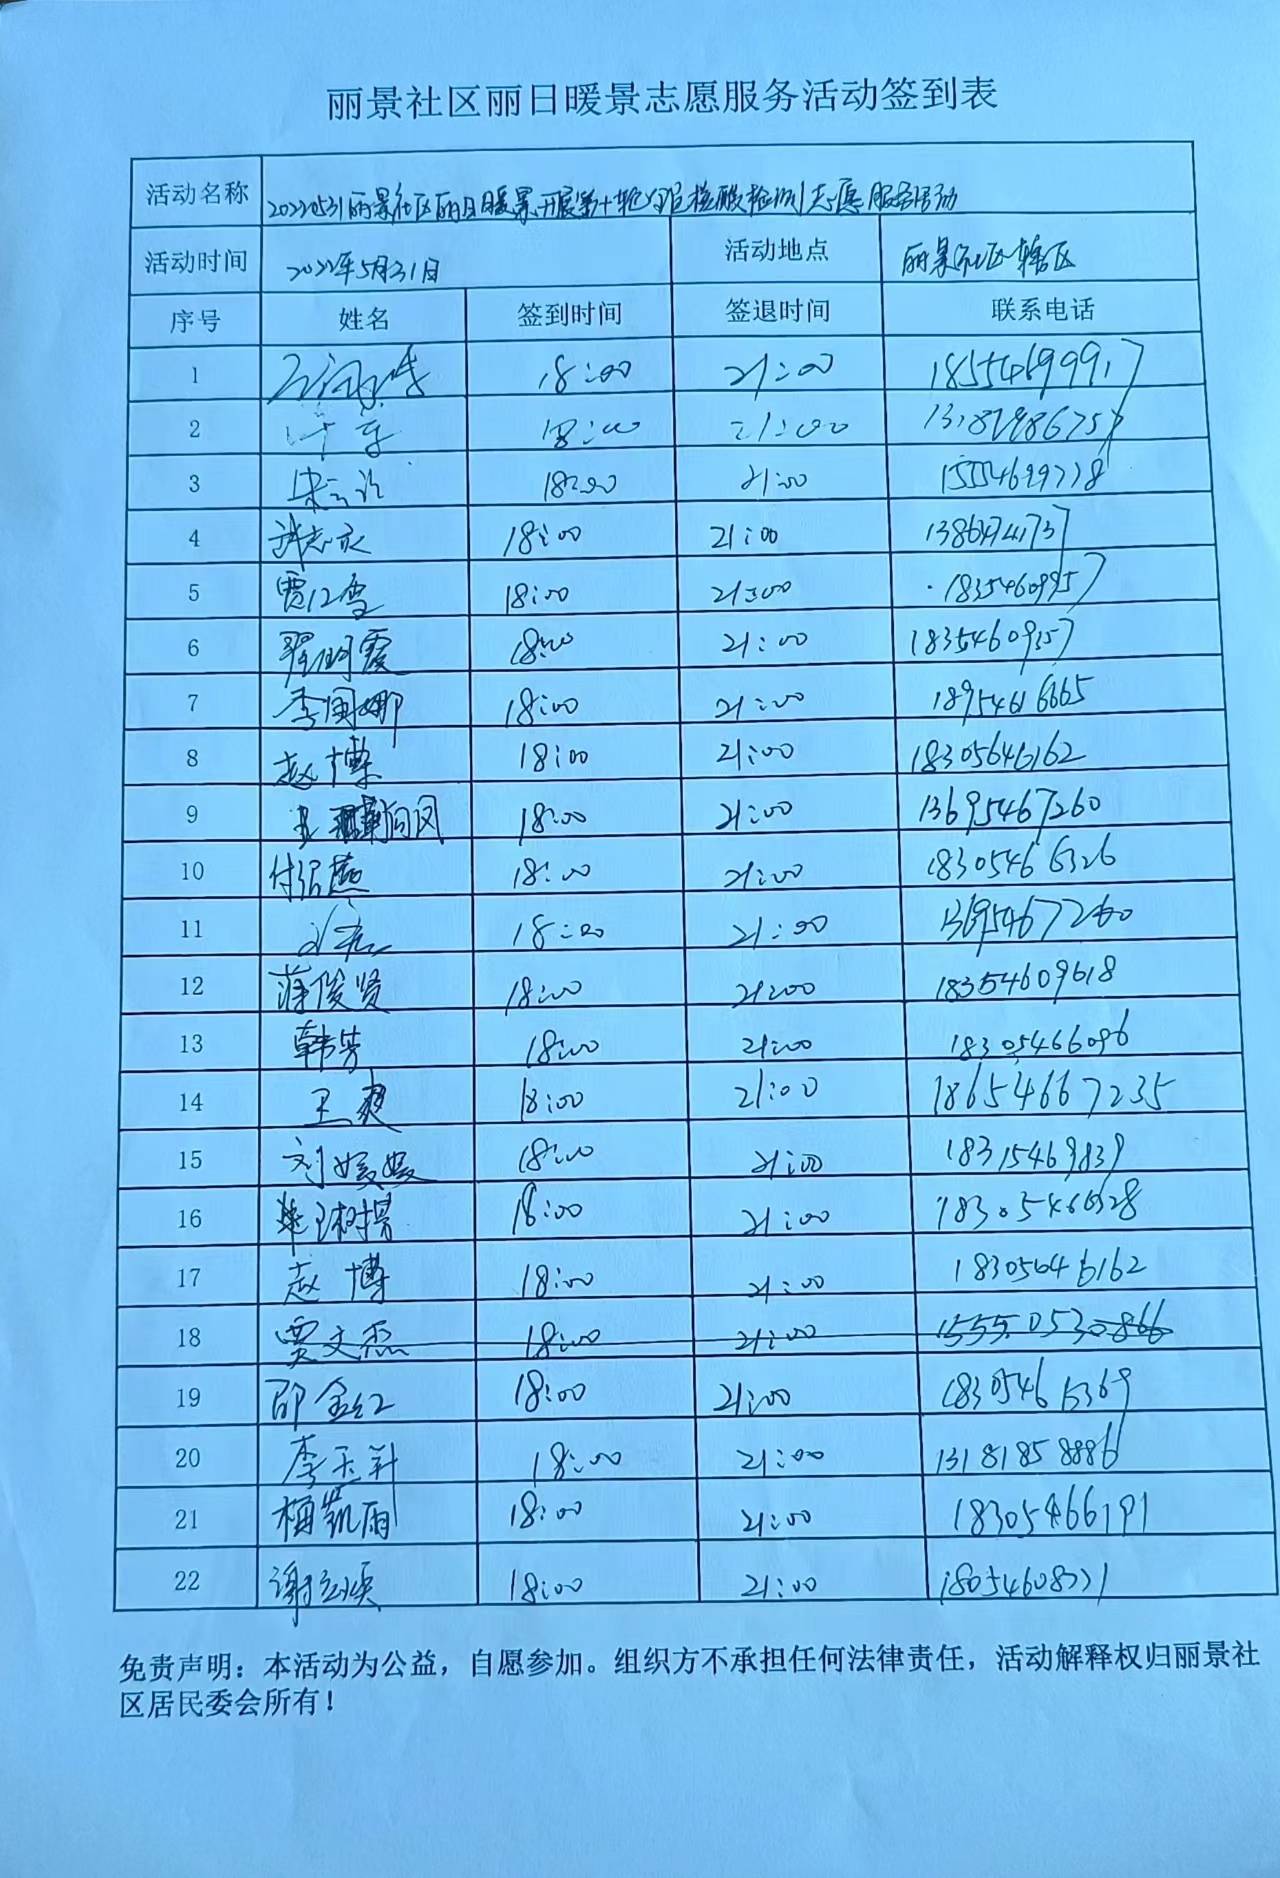 丽景社区丽日暖景志愿服务活动签到表
活动名称 丽景社区丽日暖景开展第十轮全员核酸检测志愿服务活动
活动时间 2022年5月31日 活动地点 丽景社区辖区
序号 姓名 签到时间 签退时间 联系电话
1 18:00 21:00 18554699917
2 18:00 21:00
3 18:00 21:00
4 18:00 21:00
5 贾江雪 18:00 21:00 18354609957
6 翟明霞 18:00 21:00 18354609157
7 李国娜 18:00 21:00 18954616665
8 赵博 18:00 21:00 18305646162
9 18:00 21:00 13695467260
10 18:00 21:00 18305466326
11 18:00 21:00 13695467260
12 蒋俊贤 18:00 21:00 18354609618
13 韩芳 18:00 21:00 18305466096
14 王爽 18:00 21:00 18654667235
15 刘媛媛 18:00 21:00 18315469839
16 18:00 21:00
17 赵博 18:00 21:00
18 贾文杰 18:00 21:00 15550530866
19 邵金红 18:00 21:00 18305466369
20 18:00 21:00 13181858886
21 18:00 21:00 18305466191
22 18:00 21:00
免责声明：本活动为公益，自愿参加。组织方不承担任何法律责任，活动解释权归丽景社
区居民委会所有！